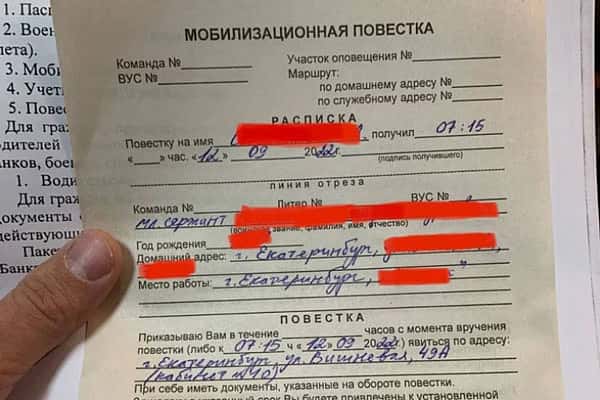 1. Пасп
2. Воен
лета).
3. Моби
4. Учет
5. Повес
Для гра
водителей
банков, боев
1. Води
Для граж
документы о
действующи
Паке
Банка
МОБИЛИЗАЦИОННАЯ ПОВЕСТКА
Команда № Участок оповещения №
ВУС № Маршрут:
по домашнему адресу №
по служебному адресу №
РАСПИСКА
Повестку на имя получил 07:15
« » час. «12» 09 2022г. (подпись получившего)
линия отреза
Команда № Литер № ВУС №
мл. сержант
(воинское звание, фамилия, имя, отчество)
Год рождения
Домашний адрес: г. Екатеринбург,
Место работы: г. Екатеринбург,
ПОВЕСТКА
Приказываю Вам в течение часов с момента вручения
повестки (либо к 07:15 ч «12» 09 2022г.) явиться по адресу:
г. Екатеринбург, ул. Вишневая, 49А
(кабинет №40)
При себе иметь документы, указанные на обороте повестки.
срок Вы будете привлечены к установленной